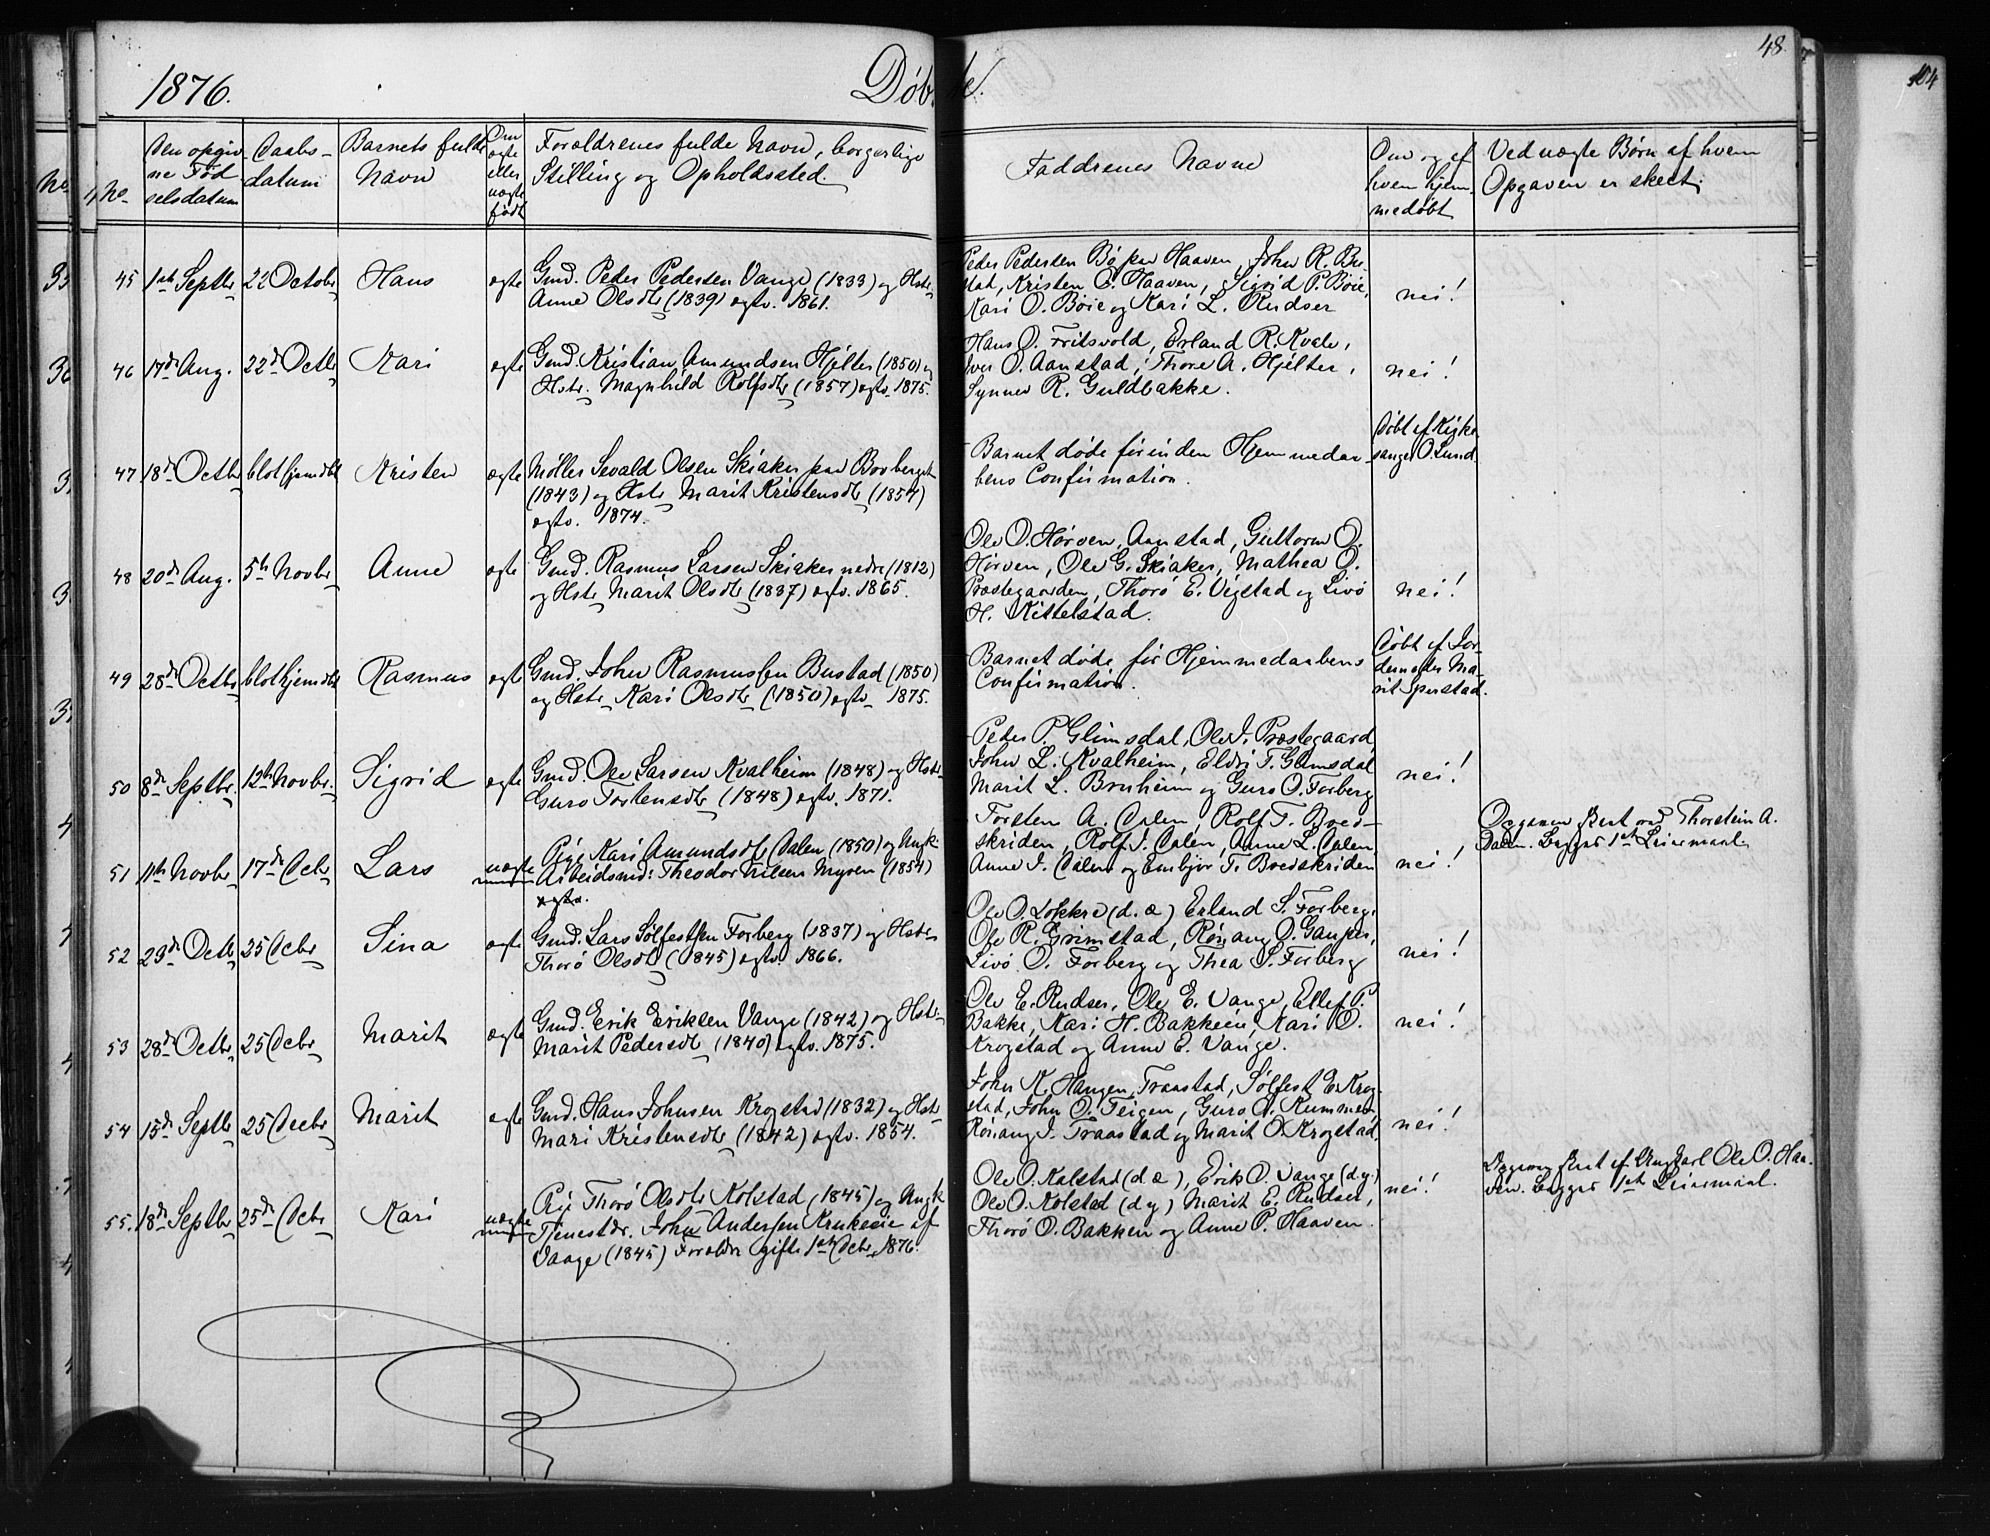 1876.
Døbte.
48.
104
No.
Den opgiv-
ne Fød-
selsdatum
Daabs-
datum
Barnets fulde
Navn
Om
ægte
eller
uægte
født
Forældrenes fulde Navn, borgerlige
Stilling og Opholdssted.
Faddrenes Navne
Om og af
hvem hjem-
medøbt
Ved uægte Børn af hvem
Opgaven er skeet.
45 1ste Septbr 22 Octobr Hans ægte
Gmd. Peder Pedersen Vange (1833) og Hstr.
Anne Olsdtr (1839) egtv. 1861.
Peder Pedersen Bø Haaven, John R. Bu-
stad, Kristen Haaven, Sigrid P. Bøie,
Kari O. Bøie og Kari L. Rudser
nei!
46 17de Aug. 22de Octbr Kari ægte
Gmd. Kristian Amundsen Hjelter (1850) og
Hstr. Magnhild Rolfsdtr (1857) egtv. 1875.
Hans O. Fritsvold, Erland R. Kvale,
Iver O. Aanstad, Thore A. Hjelter,
Synnev R. Guldbakke.
nei!
47 18de Octbr blot hjemdbt Kristen ægte
Møller Sevald Olsen Skiaker paa Bovberget
(1843) og Hstr Marit Kristensdtr (1854)
egtv. 1874.
Barnet døde førinden Hjemmedaa-
bens Confirmation.
Døbt af Kirke-
sanger O. Lund.
48 20de Aug. 5te Novbr Anne ægte
Gmd. Rasmus Larsen Skiaker nedre (1812)
og Hstr Marit Olsdtr (1837) egtv. 1865.
Ole O. Hørven, Aanstad, Guttorm O.
Hørven, Ole G. Skiaker, Mathea O.
Præstegaarden, Thorø E. Vigstad og Livø
H. Kittelstad.
nei!
49 28de Octbr blot hjemdbt Rasmus ægte
Gmd. John Rasmussen Bustad (1850)
og Hstr. Kari Olsdtr (1850) egtv. 1875.
Barnet døde før Hjemmedaabens
Confirmation.
Døbt af Jor-
demoder Ma-
rit Sperstad.
50 8de Septbr. 12te Novbr. Sigrid ægte
Gmd. Ole Larsen Kvalheim (1848) og Hstr.
Guro Torstensdtr (1848) egtv. 1871.
Peder P. Glimsdal, Ole J. Præstegaard,
John L. Kvalheim, Eldri T. Glimsdal
Marit L. Bruheim og Guro O. Forberg
nei!
51 11te Novbr 17de Decbr Lars uægte
Pige Kari Amundsdtr Dalen (1850) og Ungk.
Arbeidsmd: Theodor Nilsen Myren (1854)
Torsten A. Dalen, Rolf T. Bred-
skriden, Rolf J. Dalen, Anne L. Dalen
Anne J. Dalen og Embjør T. Bredskriden
nei!
Opgaven skeet ved Thorstein A.
Dalen. Begges 1ste Leiermaal.
52 29de Octbr 25 Decbr Sina ægte
Gmd. Lars Sølfestsen Forberg (1837) og Hstr.
Thorø Olsdtr (1845) egtv. 1866.
Ole O. Løkkre (d. æ) Erland S. Forberg,
Ole R. Grimstad, Rønaug O. Ganger,
Livø O. Forberg og Thea S. Forberg
nei!
53 28de Octbr 25 Decbr Marit ægte
Gmd. Erik Eriksen Vange (1842) og Hstr.
Marit Pedersdtr (1840) egtv. 1875.
Ole E. Rudser, Ole E. Vange, Ellef P.
Bakke, Kari H. Bakkein, Kari O.
Krogstad og Anne E. Vange.
nei!
54 15de Septbr 25 Decbr Marit ægte
Gmd. Hans Johnsen Krogstad (1832) og Hstr
Mari Kristensdtr (1842) egtv. 1854.
John K. Haugen, Traastad, Sølfest E. Krog-
stad, John O. Teigen, Guro A. Rummen
Rønaug J. Traastad og Marit O. Krogstad.
nei!
55. 18de Septbr 25de Decbr Kari uægte
Pige Thorø Olsdtr Kolstad (1845) og Ungk.
Tjenestdr. John Andersen Krukeeie af
Vaage (1845) Forældre gifte 1ste Decbr 1876.
Ole O. Kolstad (d æ), Erik O. Vange (d. y.)
Ole O. Kolstad (d y) Marit E. Rudser,
Thorø O. Bakken og Anne P. Haaven.
nei!
Opgaven skeet af Ungkarl Ole O. Haa-
ven. Begges 1ste Leiermaal.